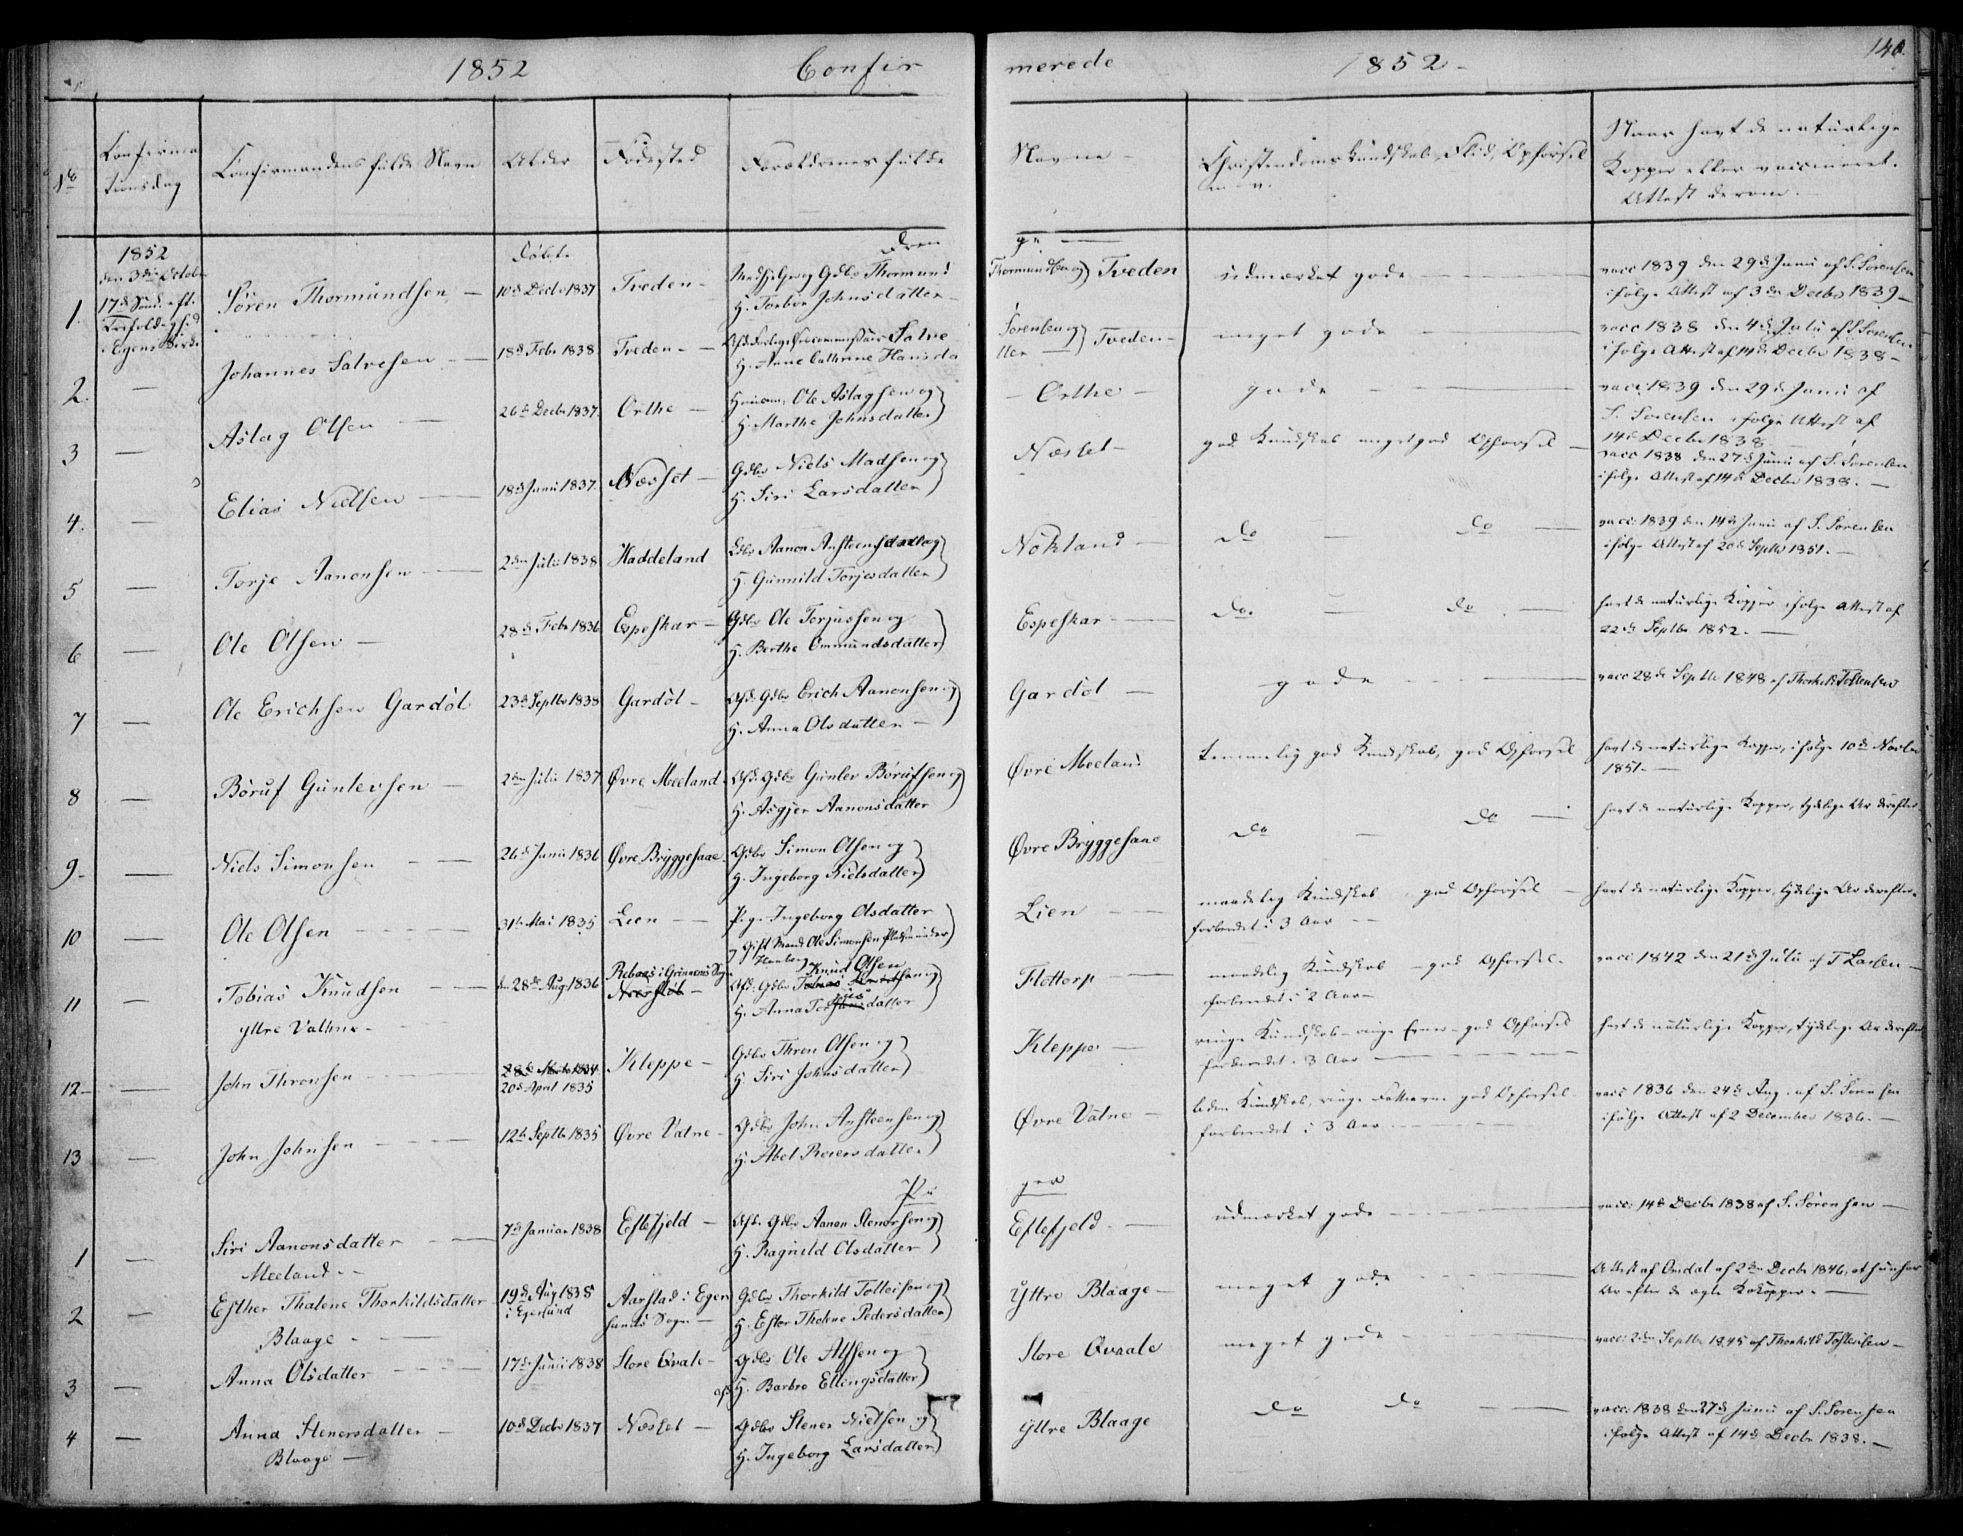 1852 Confir merede 1852 140.
No
Confirma
tionsdag
Confirmandens fulde Navn
Alder
Fødested
Forældrenes fulde
Navne
Christendomskundskab, Flid, Opførsel
m. v.
Naar havt de naturlige
Kopper eller vaccineret.
Attest derom.
1852
den 3die Octobr
17de Sønd. eft.
Dren ge
1. Søren Thormundsen 10de Decbr 1837 Tveden Gdbr Thormund Thormundsen og Tveden udmærket gode vacc. 1839 den 29de Juni af S. Sørensen
H. Torbor Johnsdatter ifølge Attest af 3de Decbr 1839
2. Johannes Salvesen 18de Febr 1838 Tveden Salve Sørensen og Tveden meget gode vacc 1838 den 4de Juli af S. Sørensen
H. Anne Cathrine Hansda tter ifølge Attest af 14de Decbr 1838
3 Aslag Olsen 26de Decbr 1837 Orthe Ole Aslagsen og Orthe gode vacc. 1839 den 29de Juni af
H. Marthe Johnsdatter S. Sørensen ifølge Attest af
14de Decbr 1838
4. Elias Nielsen 18de Juni 1837 Næsset Gdbr Niels Madsen og Næsset god Kundskab meget god Opførsel vacc 1838 den 27de Juni af S. Sørensen
H. Siri Larsdatter ifølge Attest af 14de Decbr 1838.
5 Torje Aanonsen 2den Juli 1838 Haddeland Gdbr Aanon Ansteensen og Nøkland Do Do vacc. 1839 den 14de Juni af S. Sørensen
H. Gunnild Torjesdatter ifølge Attest af 20de Septbr 1851.
6 Ole Olsen 28de Febr 1836 Espeskar Gdbr Ole Torjussen og Espeskar Do. Do. havt de naturlige Kopper ifølge Attest af
H. Berthe Ommundsdatter 22de Septbr 1852.
7 Ole Erichsen Gardøl 23de Septbr 1838 Gardøl Afd. Gdbr Erich Aanonsen og Gardøl gode vacc 28de Septbr 1848 af Thorkild Tollevsen
H. Anna Olsdatter
8 Børuf Gunlevsen 2den Juli 1837 Øvre Meeland Afd. Gdbr Gunlev Børufsen og Øvre Meeland temmelig god Kundskab, god Opførsel havt de naturlige Kopper, ifølge 10de Novbr
H. Asgjer Aanonsdatter 1851.
9. Niels Simonsen 26de Juni 1836 Øvre Bryggesaae Gdbr Simon Olsen og Øvre Bryggesaae Do Do havt de naturlige Kopper, tydelige Ar derefter
H. Ingeborg Nielsdatter
10 Ole Olsen 31te Mai 1835 Lien Pige Ingeborg Olsdatter Lien maadelig Kundskab god Opførsel havt de naturlige Kopper, tydelige Ar derefter.
og gift Mand Ole Simonsen forberedet i 3 Aar
11 Tobias Knudsen 28de Aug. 1836 Afd. Gdbr Knud Olsen og Flottorp maadelig Kundskab god Opførsel vacc. 1842 den 21de Juli af T. Larsen
Yttre Vathne H. Anna Torjusdatter forberedet i 2 Aar
12 John Thronsen 20de April 1835 Kleppe Gdbr Thron Olsen og Kleppe ringe Kundskab ringe Evner god Opførsel havt de naturlige Kopper, tydelige Ar derefter
H. Siri Johnsdatter forberedet i 3 Aar
13 John Johnsen 12te Septbr 1835 Øvre Vatne Gdbr John Ansteensen og Øvre Vatne liden Kundskab, ringe Fatteevne god Opførsel vacc 1836 den 24de Aug. af S. Sørensen
H. Abel Reiersdatter forberedet i 3 Aar ifølge Attest af 2 December 1836.
Pi ger
1 Siri Aanonsdatter 7de Januar 1838 Eftefjeld Afd. Gdbr Aanon Stenersen og Eftefjeld udmærket gode vacc. 14de Decbr 1838 af S. Sørensen
Meeland H. Ragnild Olsdatter
2 Esther Thalene Thorkildsdatter 19de Aug 1838 Aarstad i Eger Gdbr Thorkild Tollevsen og Yttre Blaage meget gode Attest af Omdal af 2den Decbr 1846, at hun har
Blaage i Egersund sunds Sogn H. Ester Thalene Pedersdatter Ar efter de ægte Kokopper.
3 Anna Olsdatter 17de Juni 1838 Store Qvale Gdbr Ole Alfsen og Store Qvaale meget gode vacc. 2den Septbr 1845 af Thorkild Tollevsen
afd. H. Barbro Ellingsdatter
4 Anna Stenersdatter 10de Decbr 1837 Næsset Gdbr Stener Nielsen og Yttre Blaage Do Do vacc. 1838 den 27de Juni af S. Sørensen
Blaage H. Ingeborg Larsdatter ifølge Attest af 14de Decbr 1838.